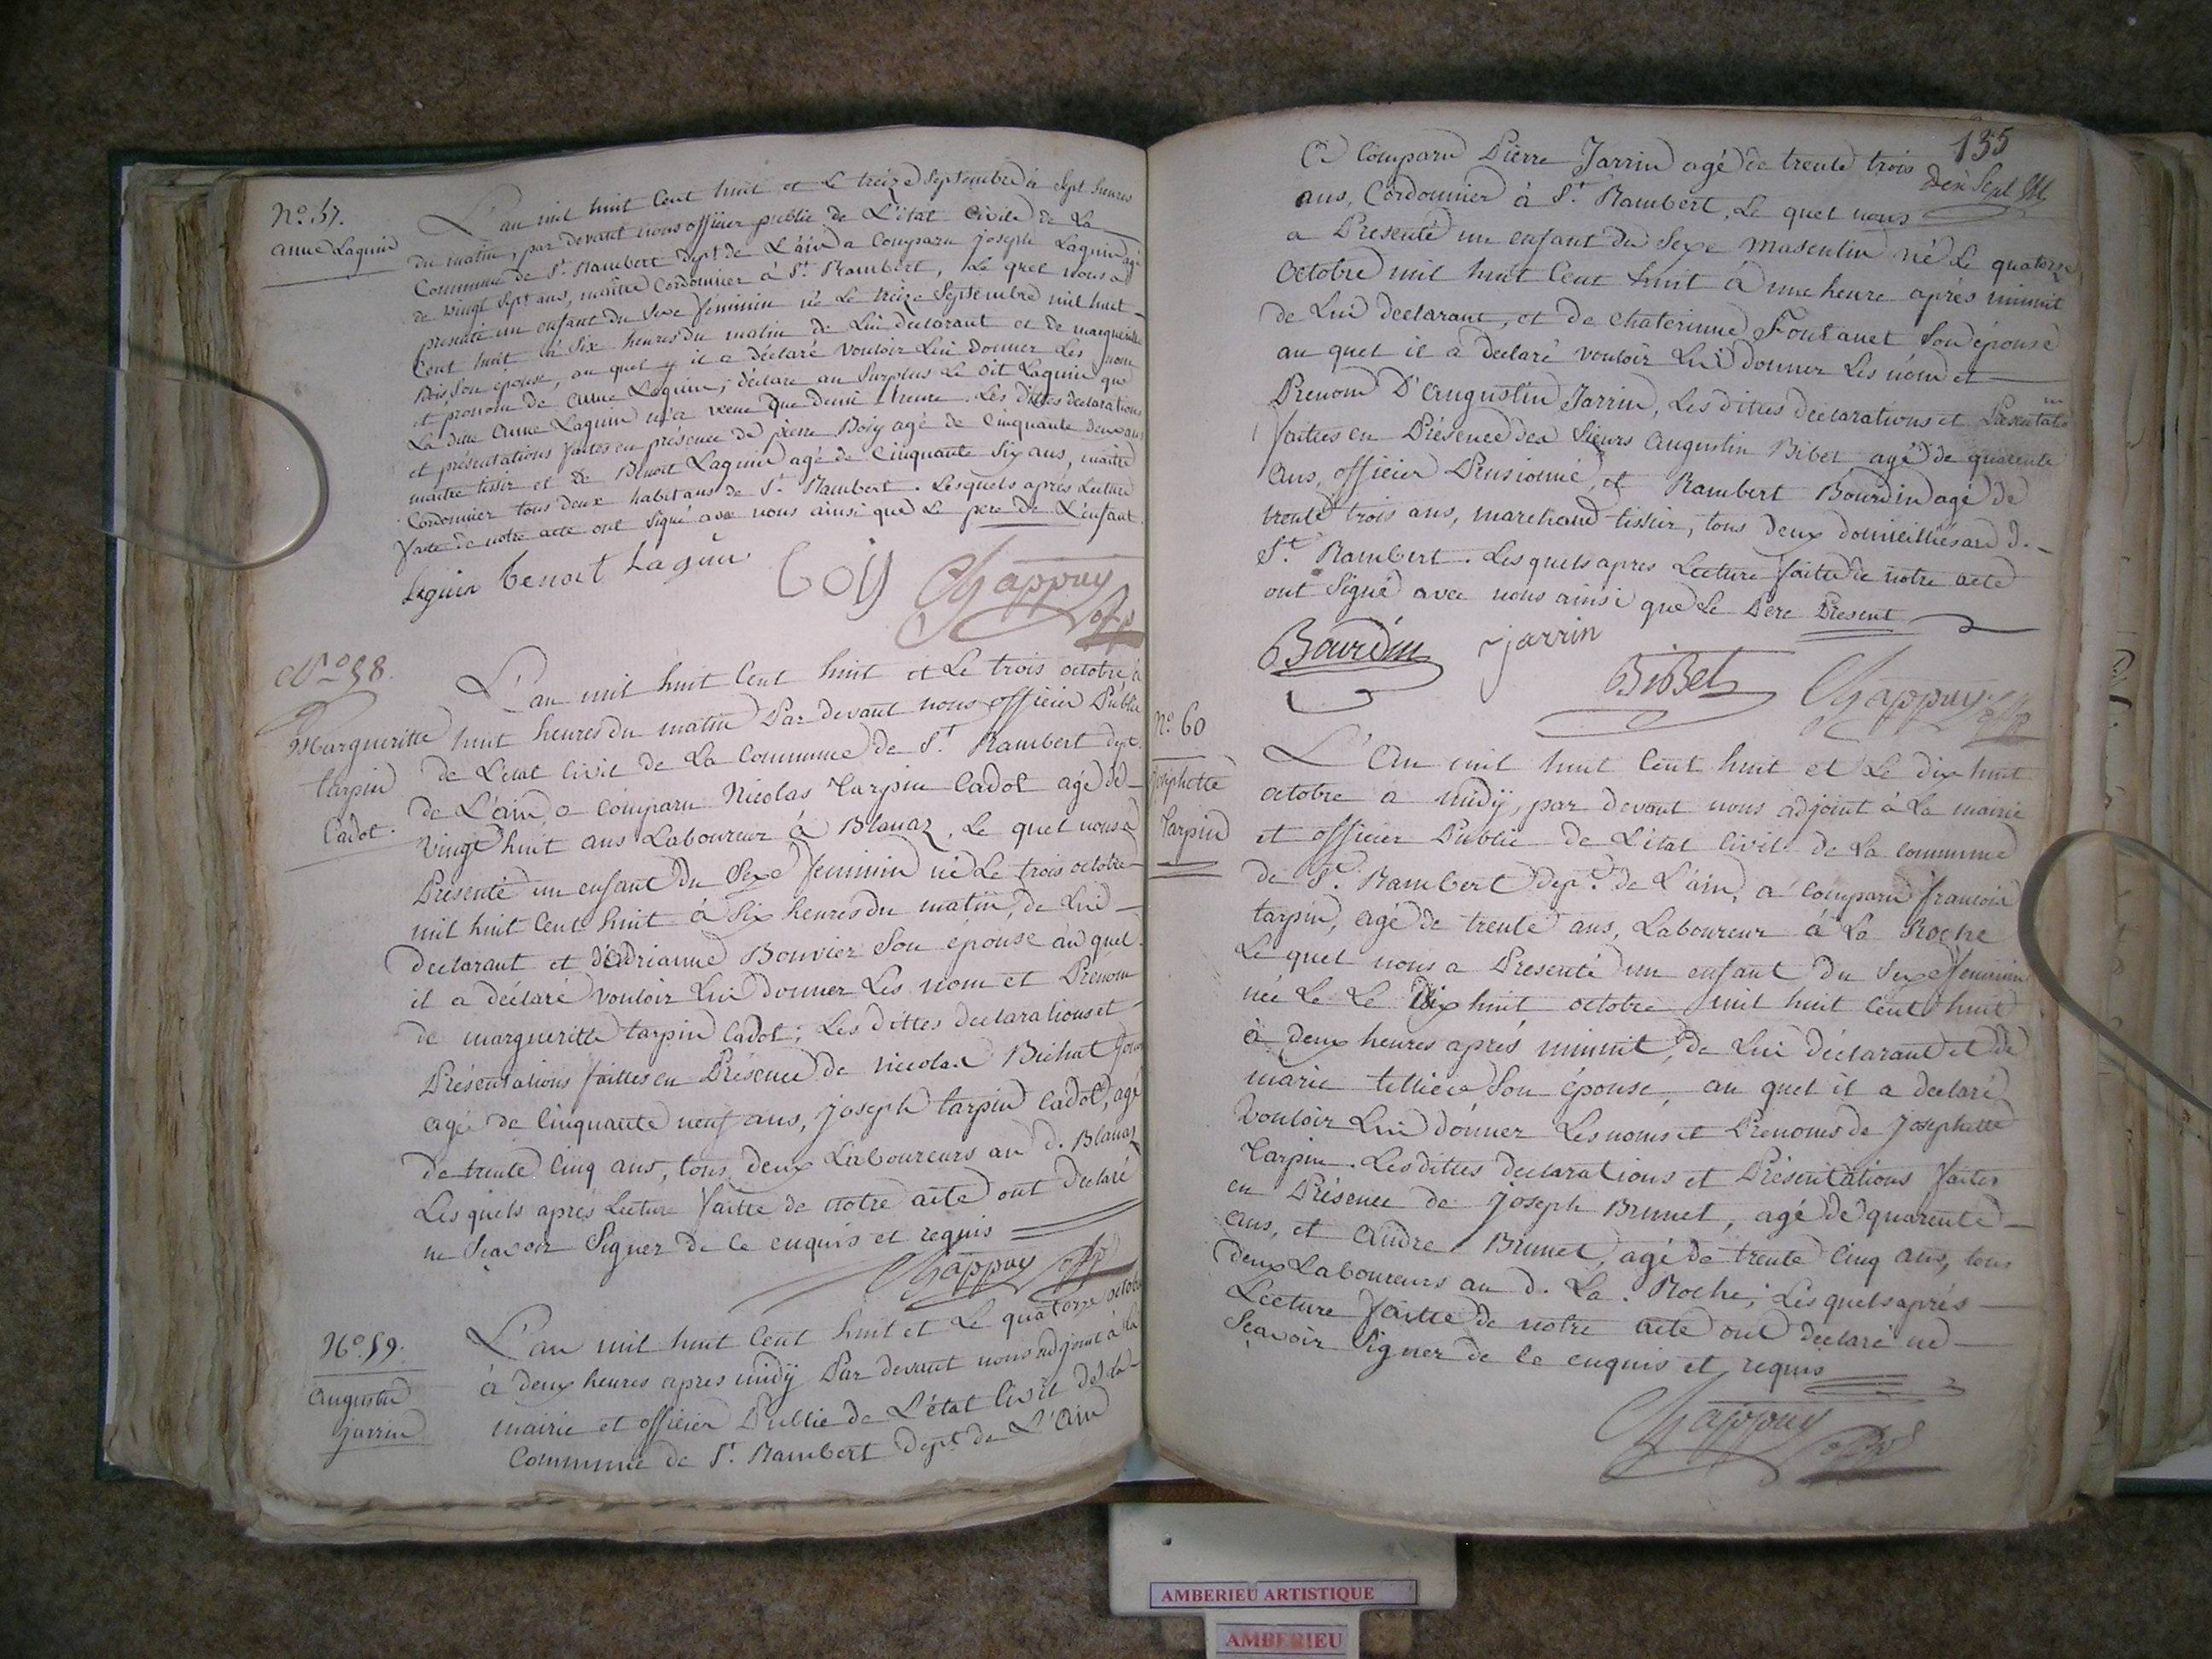 N.o 57.
anne Laguin
L'an mil huit Cent huit et Le treize Septembre à Sept heures
du matin, par devant nous officier public de L'état Civile de La
Commune de St. Rambert Dept de L'ain a Comparu joseph Laguin agé
de vingt Sept ans, maitre Cordonnier à St. Rambert, Le quel nous a
presenté un enfant du Sexe féminin né Le treize Septembre mil huit
Cent huit à Six heures du matin de Lui declarant et de margueritte
Bois, Son épouse, au quel il a déclaré vouloir Lui Donner Les nom
et prenom de anne Laguin; déclare au Surplus Le dit Laguin que
La ditte anne Laguin n'a vecue que demie heure. Les dittes declarations
et présentations faites en présence de pierre Boiy agé de Cinquante deux ans
maitre tissier et de Benoit Laguin agé de Cinquante Six ans, maitre
Cordonnier tous deux habitans de St. Rambert. Lesquels après Lecture
faite de notre acte ont Signé avec nous ainsi que Le pere de L'enfant
Laguin benoit Laguin Boiy Chappuy
N.o 58.
Margueritte
tarpin
Cadot.
L'an mil huit Cent huit et Le trois octobre à
huit heures du matin Par devant nous officier Public
de L'etat Civil de La Commune de St. Rambert dept.
de L'ain, a Comparu Nicolas Tarpin Cadot agé de
vingt huit ans Laboureur à Blanaz, Le quel nous a
Présenté un enfant du Sexe feminin né Le trois octobre
mil huit Cent huit à Six heures du matin, de Lui
declarant et d'adrianne Bouvier Son epouse au quel
il a déclaré vouloir Lui donner Les nom et Prenom
de margueritte tarpin Cadot; Les dittes declarations et
Présentations faittes en Présence de nicolas Bichat
agé de Cinquante neuf ans, joseph tarpin Cadot, agé
de trente Cinq ans, tous deux Laboureurs au d. Blanaz
Lesquels après Lecture faitte de notre acte ont declaré
ne Sçavoir Signer de Ce enquis et requis
Chappuy
N.o 59.
augustin
jarrin
L'an mil huit Cent huit et Le quatorze octobre
à deux heures apres midÿ Par devant nous adjoint à La
mairie et officier Public de L'état Civil de La
Commune de St. Rambert dept de L'Ain
135
a Comparu Pierre Jarrin agé de trente trois
ans, Cordonnier à St. Rambert, Le quel nous
a Presenté un enfant du Sexe masculin né Le quatorze
octobre mil huit Cent huit à une heure après minuit
de Lui declarant, et de Chaterinne Fontanet Son épouse
au quel il a declaré vouloir Lui donner Les nom et
Prenom D'augustin Jarrin, Les dittes declarations et Presentation
faittes en Présence des Sieurs augustin Bibet agé de quarente
ans, officier Pensionné, et Rambert Bourdin agé de
trente trois ans, marchand tissier, tous deux domiciliés au d.
St. Rambert. Lesquels apres Lecture faitte de notre acte
ont Signé avec nous ainsi que Le Père Present
Bourdin jarrin BiBet Chappuy
N.o 60
josephette
tarpin
L'an mil huit Cent huit et Le dix huit
octobre a midÿ, par devant nous adjoint à La mairie
et officier Public de L'état Civil de La commune
de St. Rambert dept. de L'ain, a Comparu francois
tarpin, agé de trente ans, Laboureur à La Roche
Le quel nous a Presenté un enfant du Sexe feminin
née Le Le dix huit octobre mil huit Cent huit
à deux heures après minuit, de Lui déclarant et de
marie Son épouse, au quel il a declaré
vouloir Lui donner Les noms et Prenoms de josephette
Tarpin. Les dittes declarations et Présentations faites
en Présence de joseph Brunet, agé de quarente
ans, et andre Brunet, agé de trente Cinq ans, tous
deux Laboureurs au d. La Roche, Lesquels après
Lecture faitte de notre acte ont declaré ne
Sçavoir Signer de Ce enquis et requis
Chappuy
AMBERIEU ARTISTIQUE
AMBERIEU